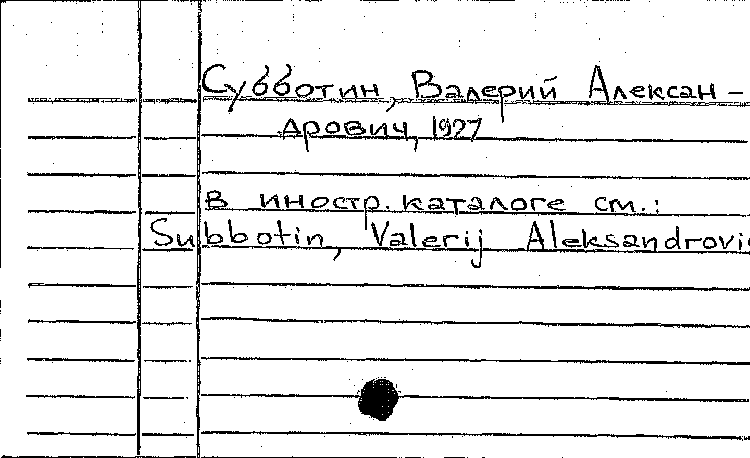 Субботин, Валерий Алексан-
дрович, 1927
в иностр. каталоге см.:
Subbotin, Valerij Aleksandrovic